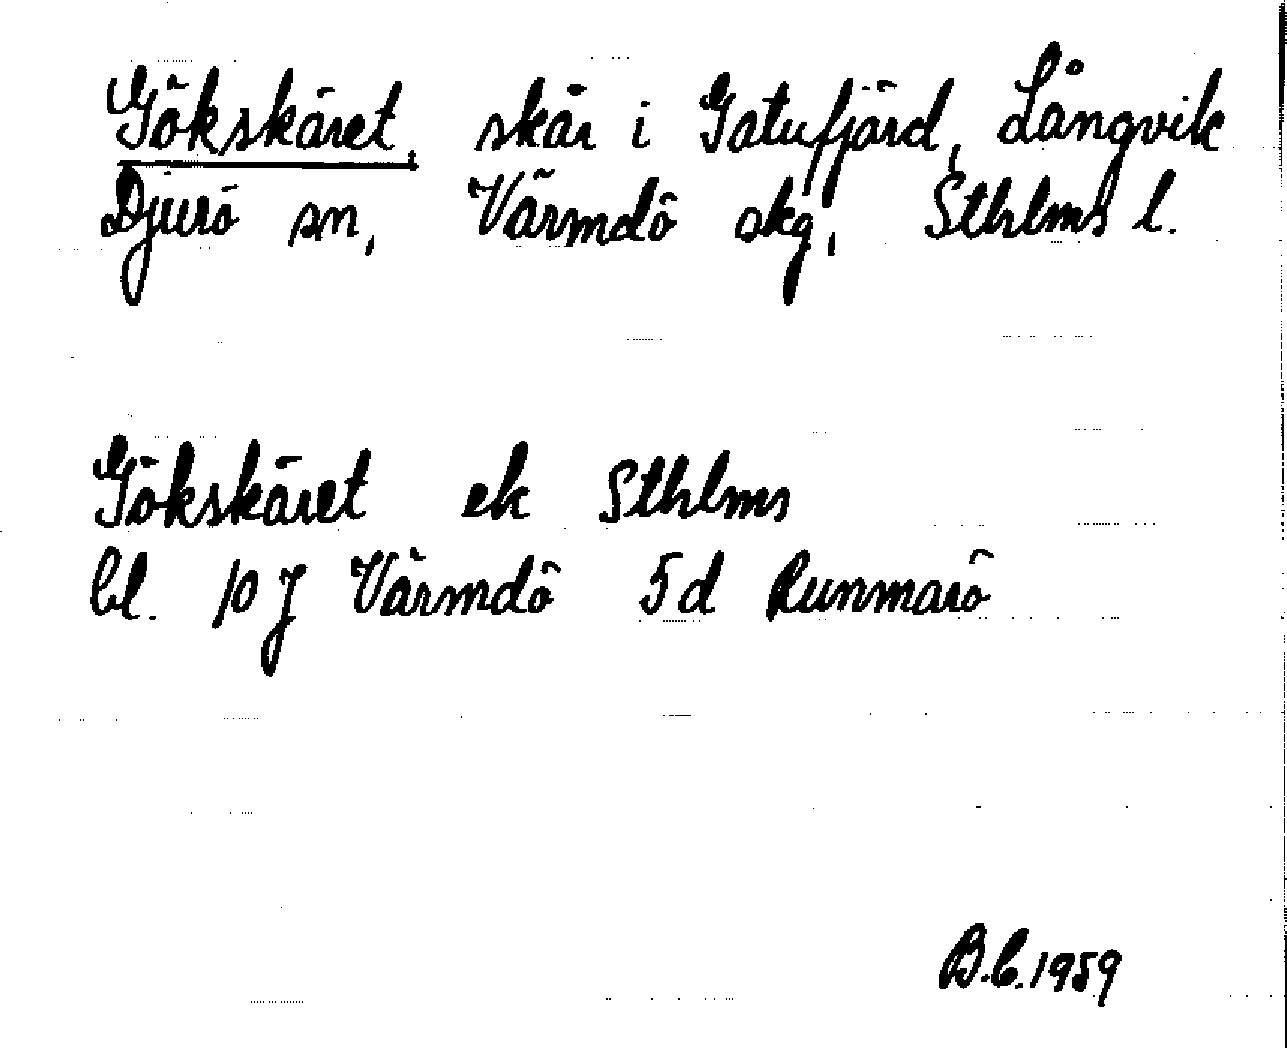 Gökskäret, skär i Gatufjärd, Långvik
Djurö sn, Värmdö skg, Sthlms l.
Gökskäret ek Sthlms
bl. 10 J Värmdö 5d Runmarö
B.C. 1959